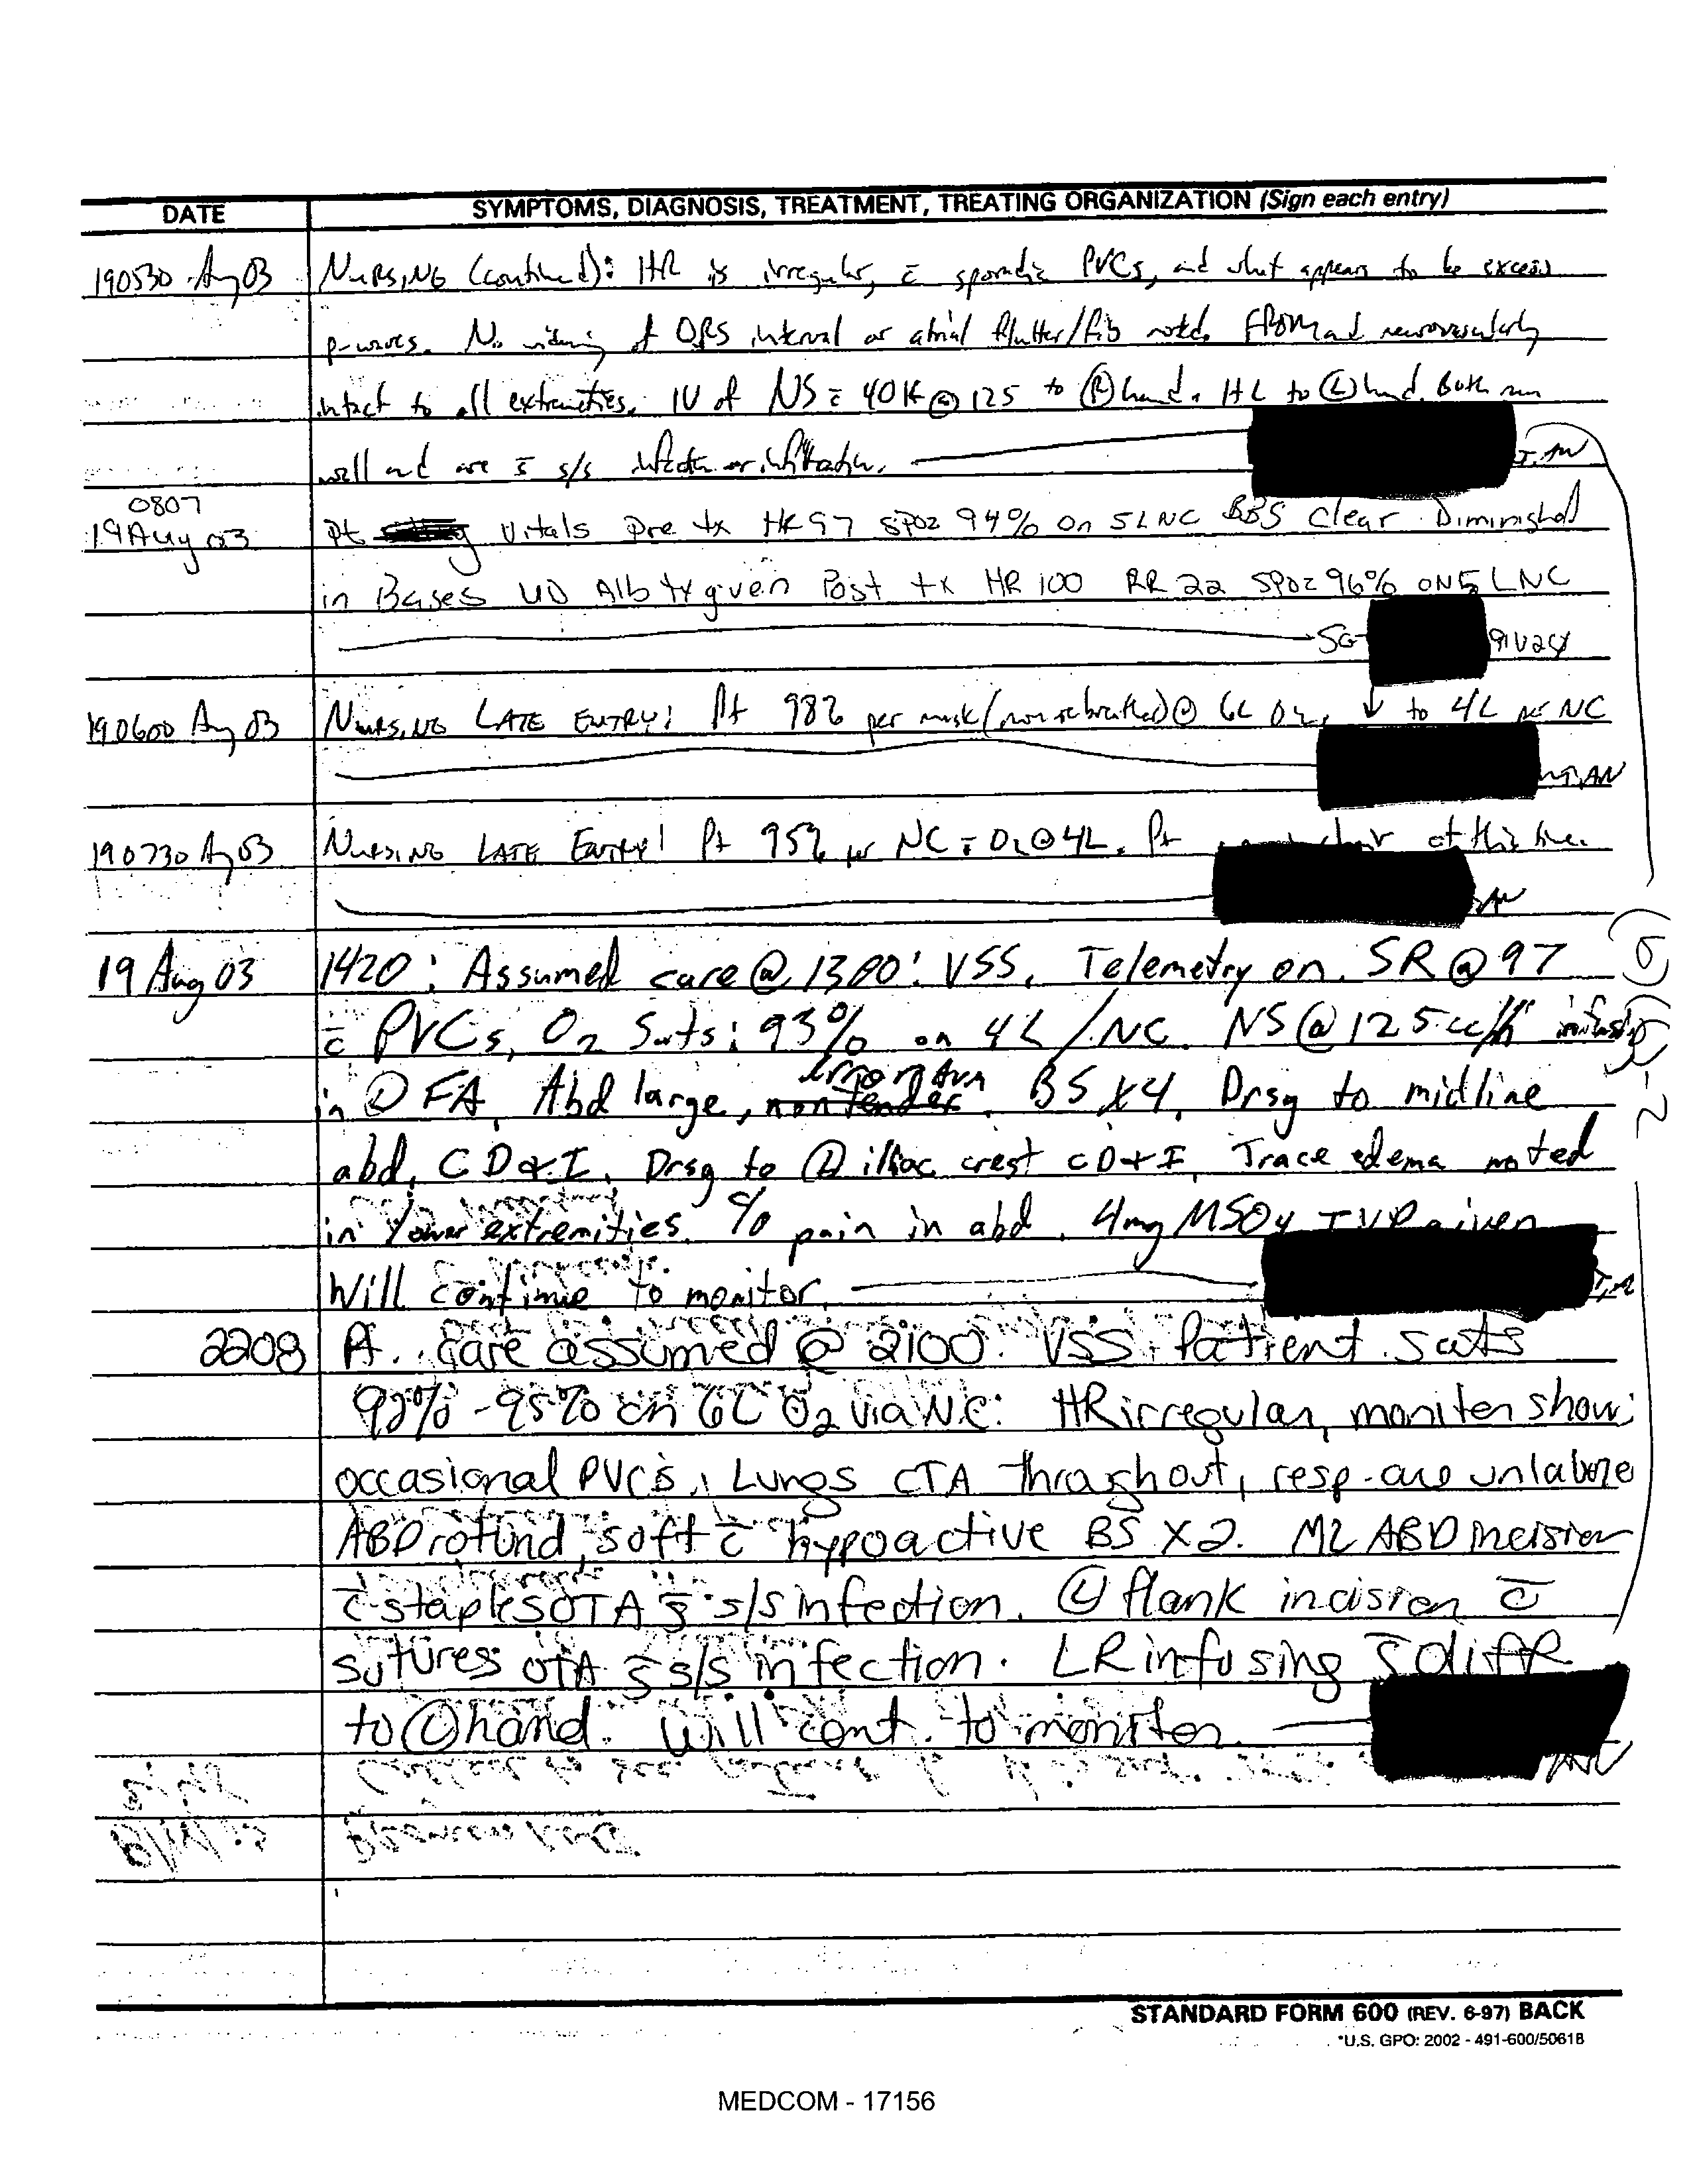 DATE SYMPTOMS, DIAGNOSIS, TREATMENT, TREATING ORGANIZATION (Sign each entry)
190530 Aug 03 NURSING (continued): HR is irregular, c̄ sporadic PVCs, and what appears to be excess
p-waves. No widening of QRS interval or atrial flutter/fib noted. FROM and neurovascularly
intact to all extremities. IV of NS c̄ 40K @ 125 to (R) hand. HL to (L) hand. Both run
well and are s̄ s/s infection or infiltration.
0807
19 Aug 03 Pt Vitals Pre tx HR 97 SPO2 94% on 5L NC BBS Clear Diminished
in Bases UD Alb tx given Post tx HR 100 RR 22 SPO2 96% ON 5 LNC
SG 91V
190600 Aug 03 NURSING LATE ENTRY: Pt 98% per mask (nonrebreather) @ 6L O2, ↓ to 4L per NC
AN
190730 Aug 03 NURSING LATE ENTRY! Pt 95% per NC c̄ O2 @ 4L. Pt at this time.
AN
19 Aug 03 1420: Assumed care @ 1300: VSS, Telemetry on. SR @ 97
c̄ PVCs, O2 Sats: 93% on 4L/NC. NS @ 125 cc/h infusing
in FA, Abd large, nontender error BS x4, Drsg to midline
abd, CD&I, Drsg to (L) iliac crest CD&I, Trace edema noted
in lower extremities. c/o pain in abd. 4mg MSO4 IVP given
Will continue to monitor.
2208 A. Care assumed @ 2100. VSS. Patient sats
92%-95% on 6L O2 via NC. HR irregular, moniter shows
occasional PVC's. Lungs CTA throughout, resp. are unlabore
ABD rotund, soft c̄ hypoactive BS X2. ML ABD incision
c̄ staples OTA s̄ s/s infection. (L) flank incision c̄
sutures OTA s̄ s/s infection. LR infusing s̄ diff
to (L) hand. Will cont. to moniter.
STANDARD FORM 600 (REV. 6-97) BACK
*U.S. GPO: 2002 - 491-600/50618
MEDCOM - 17156